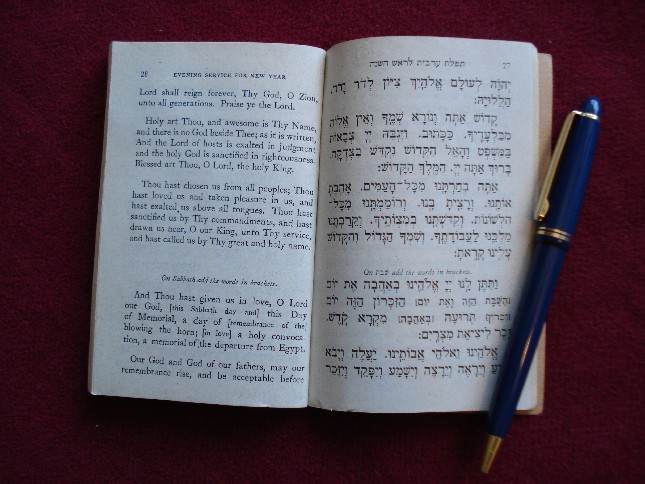 28 EVENING SERVICE FOR NEW YEAR
Lord shall reign forever, Thy God, O Zion,
unto all generations. Praise ye the Lord.
Holy art Thou, and awesome is Thy Name,
and there is no God beside Thee; as it is written,
And the Lord of hosts is exalted in judgment
and the holy God is sanctified in righteousness.
Blessed art Thou, O Lord, the holy King.
Thou hast chosen us from all peoples; Thou
hast loved us and taken pleasure in us, and
hast exalted us above all tongues. Thou hast
sanctified us by Thy commandments, and hast
drawn us near, O our King, unto Thy service,
and hast called us by Thy great and holy name.
On Sabbath add the words in brackets.
And Thou hast given us in love, O Lord
our God, [this Sabbath day and] this Day
of Memorial, a day of [remembrance of the]
blowing the horn; [in love] a holy convoca-
tion, a memorial of the departure from Egypt.
Our God and God of our fathers, may our
remembrance rise, and be acceptable before
תפלת ערבית לראש השנה
יְהֹוָה לְעוֹלָם אֱלֹהַיִךְ צִיּוֹן לְדֹר וָדֹר.
הַלְלוּיָהּ:
קָדוֹשׁ אַתָּה וְנוֹרָא שְׁמֶךָ וְאֵין אֱלוֹהַּ
מִבַּלְעָדֶיךָ. כַּכָּתוּב. וַיִּגְבַּהּ יְיָ צְבָאוֹת
בַּמִּשְׁפָּט וְהָאֵל הַקָּדוֹשׁ נִקְדַּשׁ בִּצְדָקָה.
בָּרוּךְ אַתָּה יְיָ. הַמֶּלֶךְ הַקָּדוֹשׁ:
אַתָּה בְחַרְתָּנוּ מִכָּל־הָעַמִּים. אָהַבְתָּ
אוֹתָנוּ. וְרָצִיתָ בָּנוּ. וְרוֹמַמְתָּנוּ מִכָּל־
הַלְּשׁוֹנוֹת. וְקִדַּשְׁתָּנוּ בְּמִצְוֹתֶיךָ. וְקֵרַבְתָּנוּ
מַלְכֵּנוּ לַעֲבוֹדָתֶךָ. וְשִׁמְךָ הַגָּדוֹל וְהַקָּדוֹשׁ
עָלֵינוּ קָרָאתָ:
On שבת add the words in brackets.
וַתִּתֶּן לָנוּ יְיָ אֱלֹהֵינוּ בְּאַהֲבָה אֶת יוֹם
הַשַּׁבָּת הַזֶּה וְאֶת יוֹם] הַזִּכָּרוֹן הַזֶּה יוֹם
תְּרוּעָה [בְּאַהֲבָה] מִקְרָא קֹדֶשׁ.
לִיצִיאַת מִצְרָיִם:
אֱלֹהֵינוּ וֵאלֹהֵי אֲבוֹתֵינוּ. יַעֲלֶה וְיָבֹא
וְיֵרָאֶה וְיֵרָצֶה וְיִשָּׁמַע וְיִפָּקֵד וְיִזָּכֵר